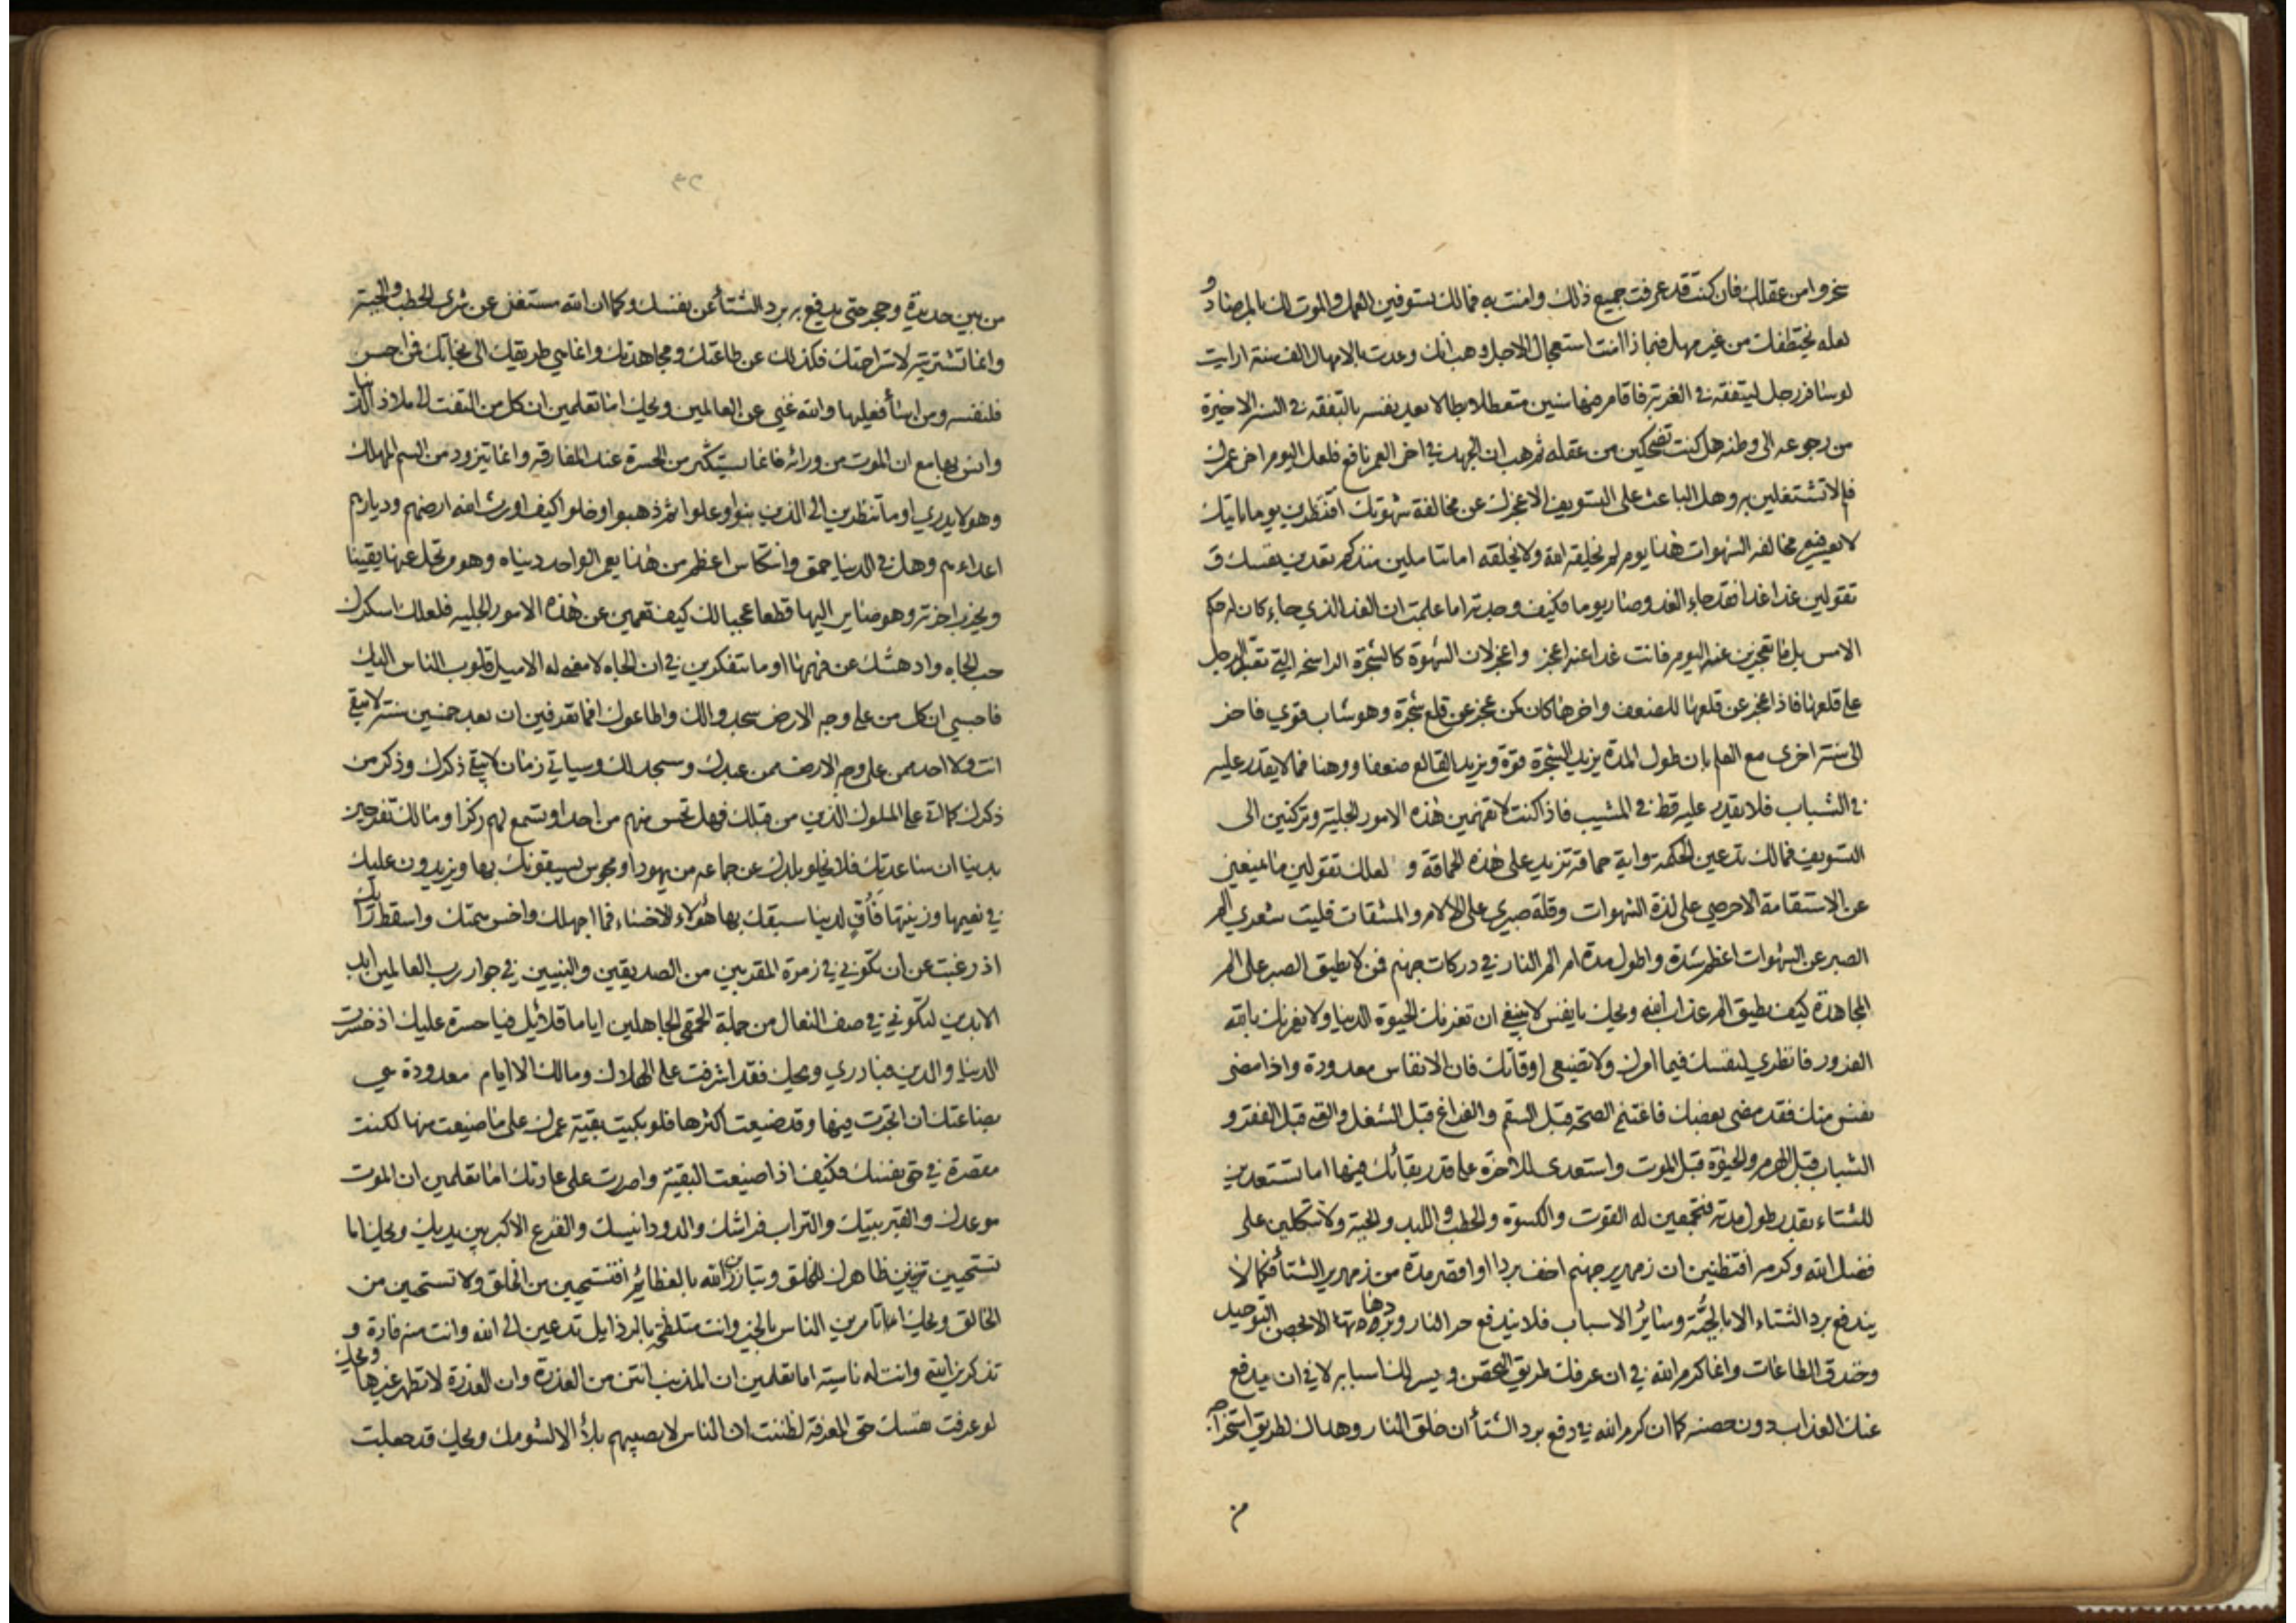 سخروا من عقلك فان كنت قد عرفت جميع ذلك وامنت به فمالك تسوفين العمل والموت لك بالمرصاد و
لعله يختطفك من غير مهل فبماذا امنت استعجال الاجل وهب انك وعدت بالامهال الف سنة ارايت
لو سافر رجل ليتفقه في الغربة فاقام فيها سنين متعطلا بطالا يعد نفسه بالتفقه في السنة الاخيرة
من رجوعه الى وطنه هل كنت تضحكين من عقله ثم هب ان الجهد في اخر العمر نافع فلعل اليوم اخر عمرك
فلم لا تشتغلين به وهل الباعث على التسويف الا عجزك عن مخالفة شهوتك افتنظرين يوما ياتيك
لا تعسر فيه مخالفة الشهوات هذا يوم لم يخلقه الله ولا يخلقه اما تتاملين منذ كم تعدين نفسك و
تقولين غدا غدا فقد جاء الغد وصار يوما فكيف وجدته اما علمت ان الغد الذي جاء كان له حكم
الامس بل ما تعجزين عنه اليوم فانت غدا عنه اعجز واعجز لان الشهوة كالشجرة الراسخة التي تعبد الرجل
على قلعها فاذا عجز عن قلعها للضعف واخرها كان كمن عجز عن قلع شجرة وهو شاب قوي فاخر
الى سنة اخرى مع العلم بان طول المدة يزيد الشجرة قوة ويزيد القالع ضعفا ووهنا فما لا يقدر عليه
في الشباب فلا يقدر عليه قط في المشيب فاذا كنت لا تفهمين هذه الامور الجلية وتركنين الى
التسويف فمالك تدعين الحكمة واية حماقة تزيد على هذه الحماقة و لعلك تقولين ما يمنعني
عن الاستقامة الا حرصي على لذة الشهوات وقلة صبري على الالام والمشقات فليت شعري الم
الصبر عن الشهوات اعظم شدة واطول مدة ام الم النار في دركات جهنم فمن لا يطيق الصبر على الم
المجاهدة كيف يطيق الم عذاب الله ويحك يا نفس لا ينبغي ان تغرنك الحيوة الدنيا ولا يغرنك بالله
الغرور فانظري لنفسك فما امرك ولا تضيعي اوقاتك فان الانفاس معدودة واذا مضى
نفس منك فقد مضى بعضك فاغتنم الصحة قبل السقم والفراغ قبل الشغل والغنى قبل الفقر و
الشباب قبل الهرم والحيوة قبل الموت واستعدي للاخرة على قدر بقائك فيها اما تستعدين
للشتاء بقدر طول مدته فتجمعين له القوت والكسوة والحطب واللبد والجبة ولا تتكلين على
فضل الله وكرمه افتظنين ان زمهرير جهنم اخف بردا او اقصر مدة من زمهرير الشتأ فكما لا
يندفع برد الشتاء الا بالجبة وسائر الاسباب فلا يندفع حر النار وبردها الا بحصن التوحيد
وخندق الطاعات وانما كرم الله في ان عرفك طريق التحصن ويسر لك اسبابه لا في ان يدفع
عنك العذاب دون حصنه كما ان كرم الله في دفع برد الشتأ ان خلق النار وهداك لطريق استخراجها
من
٣٢
من بين حديدة وحجر حتى يدفع به برد الشتأ عن نفسك وكما ان الله مستغن عن شرى الحطب والجبة
وانما تشتريه لاستراحتك فكذلك عن طاعتك ومجاهدتك وانما هي طريقك الى نجاتك فمن احسن
فلنفسه ومن اسأ فعليها والله غني عن العالمين ويحك اما تعلمين ان كل من التفت الى ملاذ الدنيا
وانس بها مع ان الموت من ورائه فانما يستكثر من الحسرة عند المفارقة وانما يتزود من السم المهلك
وهو لا يدري او ما تنظرين الى الذين بنوا وعلوا ثم ذهبوا وخلوا كيف اورث الله ارضهم وديارهم
اعداءهم وهل في الدنيا حمق وانتكاس اعظم من هذا يعمر الواحد دنياه وهو مرتحل عنها يقينا
ويخرب اخرته وهو صاير اليها قطعا عجبا لك كيف تعمين عن هذه الامور الجلية فلعلك اسكرك
حب الجاه وادهشك عن فهمها او ما تتفكرين في ان الجاه لا معنى له الا ميل قلوب الناس اليك
فاحسبي ان كل من على وجه الارض سجدوا لك واطاعوك افما تعرفين ان بعد خمسين سنة لا تبقى
انت ولا احد ممن على وجه الارض ممن عبدك وسجد لك وسياتي زمان لا يبقى ذكرك وذكر من
ذكرك كما اتى على الملوك الذين من قبلك فهل تحس منهم من احد او تسمع لهم ركزا ومالك تفرحين
بدنيا ان ساعدتك فلا يخلو بلدك عن جماعة من يهود او مجوس يسبقونك بها ويزيدون عليك
في نعيمها وزينتها فأف لدنيا سبقك بها هؤلاء الاخساء فما اجهلك واخس همتك واسقط رايك
اذ رغبت عن ان تكوني في زمرة المقربين من الصديقين والنبيين في جوار رب العالمين ابد
الابدين لتكوني في صف النعال من جملة الحمقى الجاهلين اياما قلائل فيا حسرة عليك اذ خسرت
الدنيا والدين فبادري ويحك فقد اشرفت على الهلاك ومالك الا ايام معدودة هي
بضاعتك ان اتجرت فيها وقد ضيعت اكثرها فلو بكيت بقية عمرك على ما ضيعت منها لكنت
مقصرة في حق نفسك فكيف اذا ضيعت البقية واصررت على عادتك اما تعلمين ان الموت
موعدك والقبر بيتك والتراب فراشك والدود انيسك والفزع الاكبر بين يديك ويحك اما
تستحيين تزينين ظاهرك للخلق وتبارزين الله بالعظائم افتستحيين من الخلق ولا تستحين من
الخالق ويحك اتامرين الناس بالخير وانت متلطخة بالرذايل تدعين الى الله وانت منه فارة و
تذكرين الله وانت له ناسية اما تعلمين ان المذنب انتن من العذرة وان العذرة لا تطهر غيرها ويحك
لو عرفت نفسك حق المعرفة لظننت ان الناس لا يصيبهم بلأ الا لشومك ويحك قد جعلت